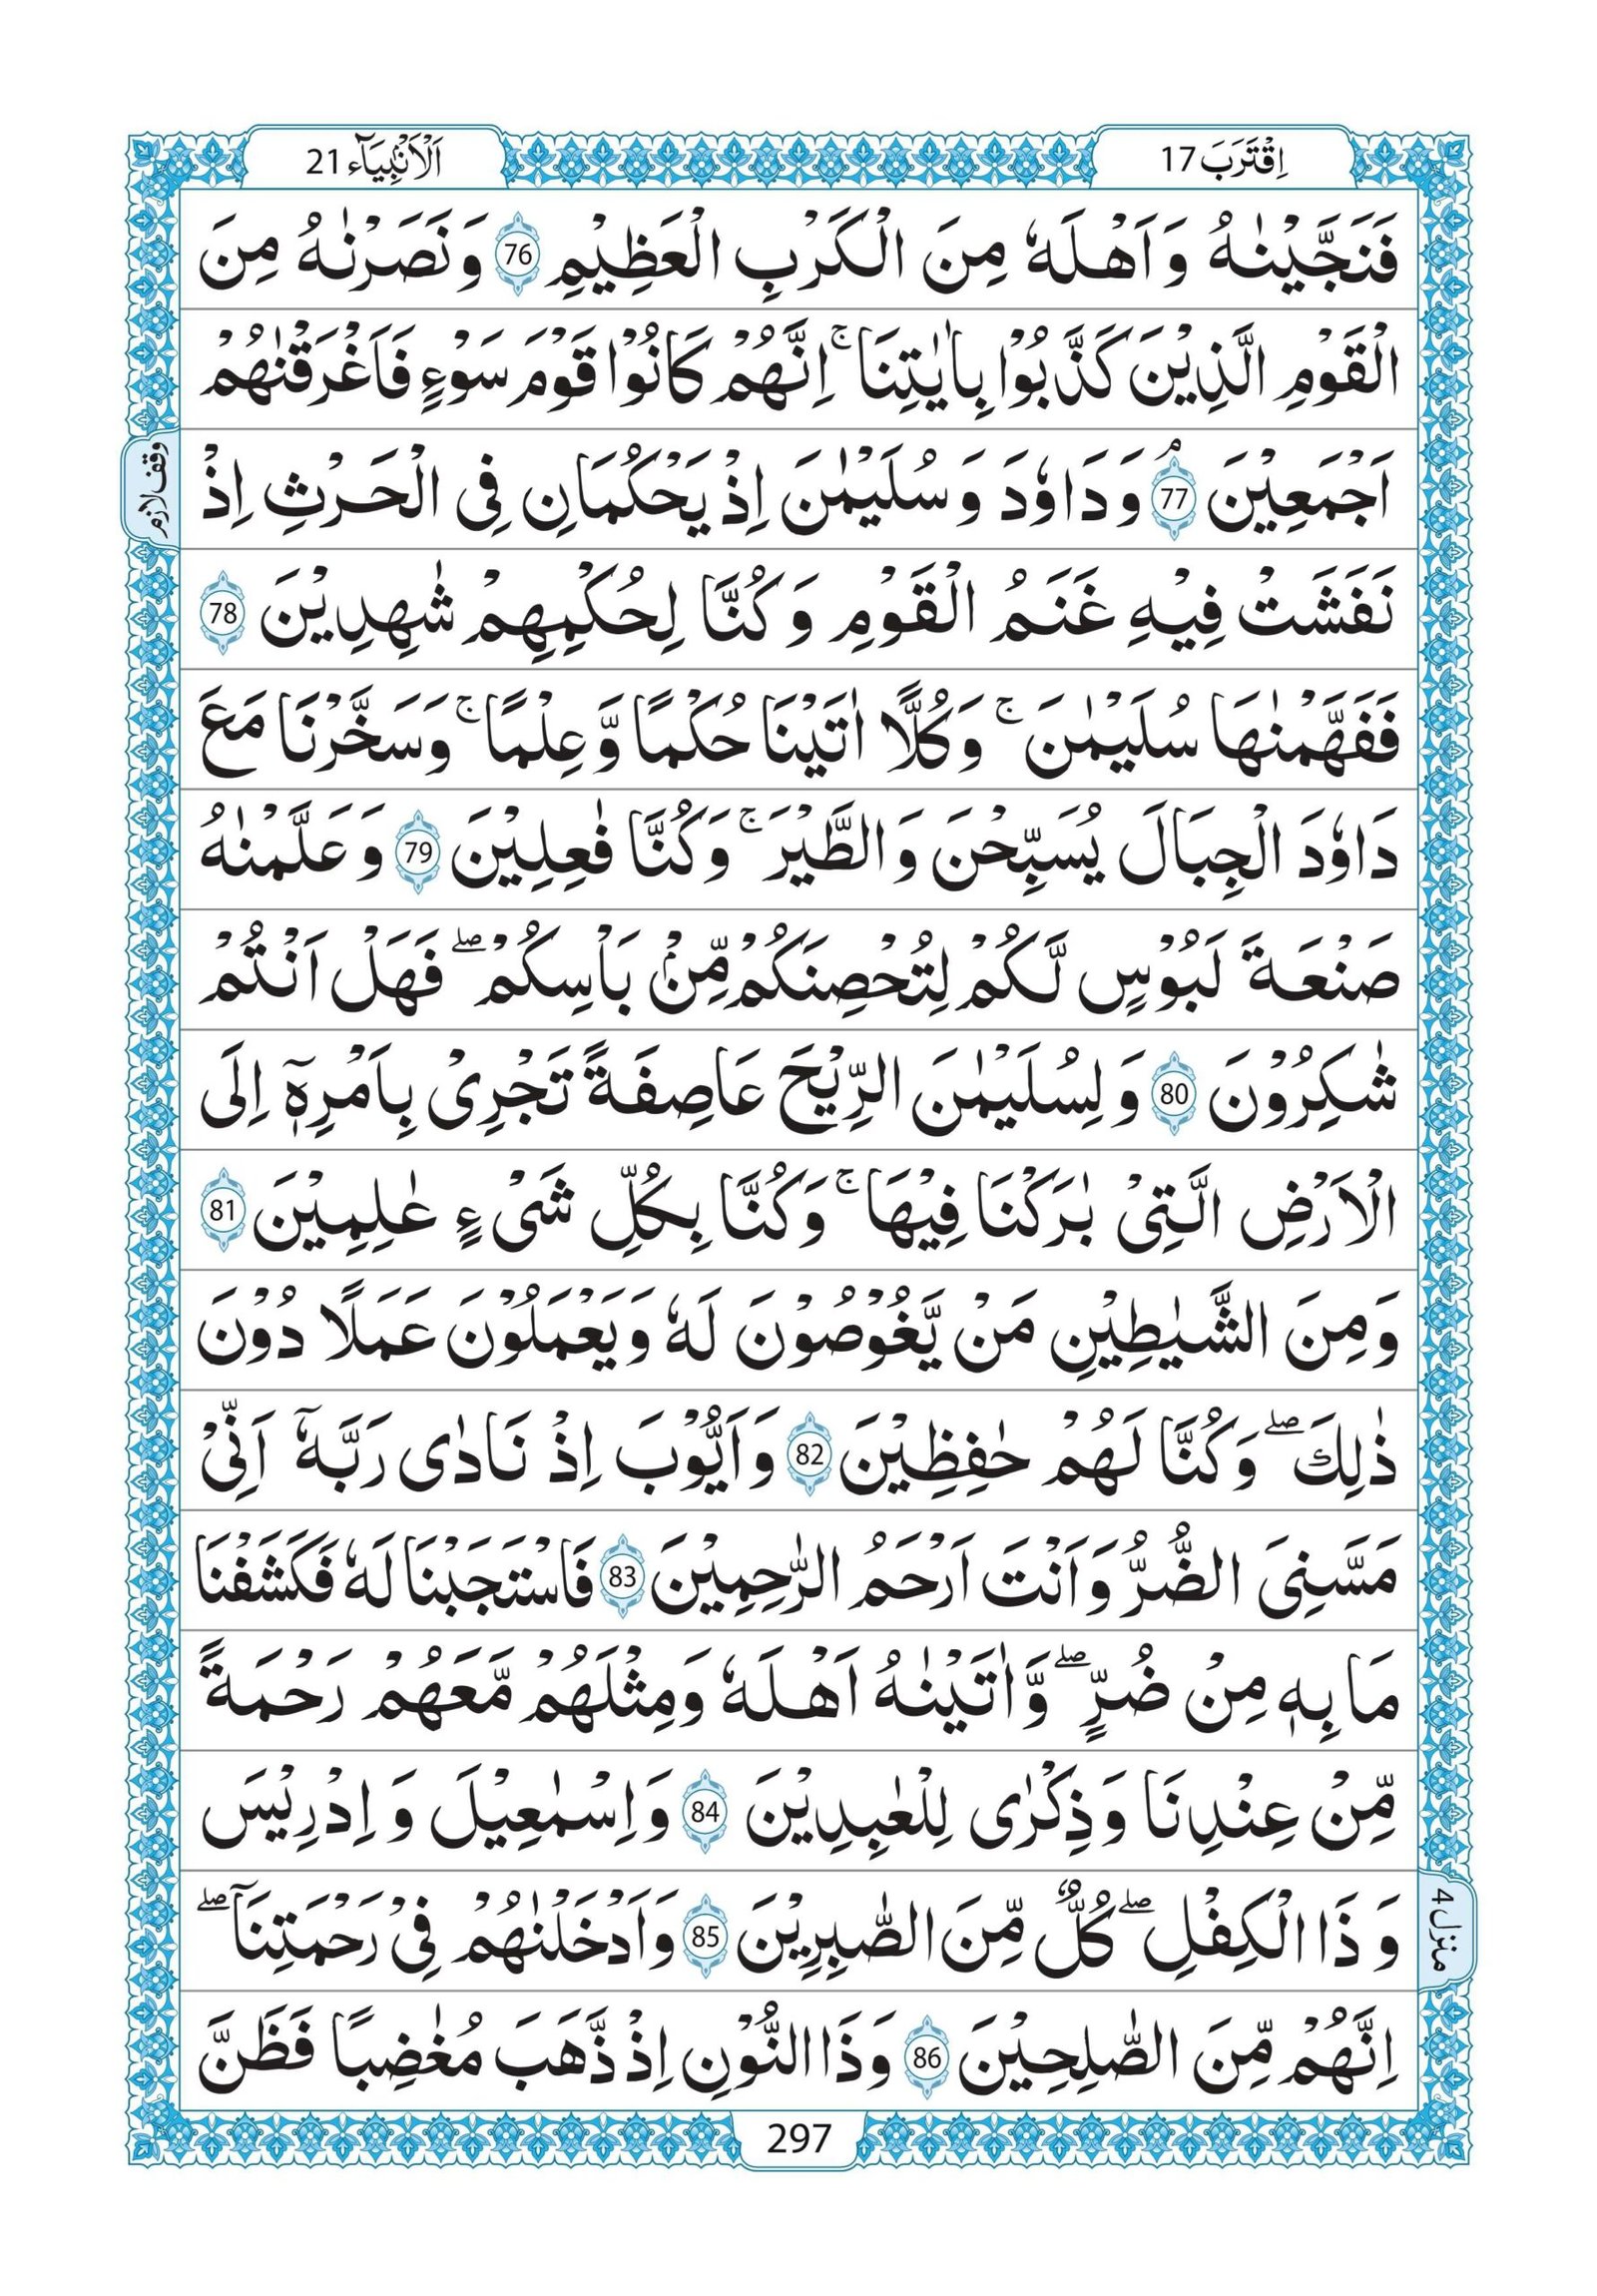 اِقْتَرَبَ 17
اَلْاَنْۢبِيَآء 21
فَنَجَّيْنٰهُ وَ اَهْلَهٗ مِنَ الْكَرْبِ الْعَظِيْمِ 76 وَ نَصَرْنٰهُ مِنَ
الْقَوْمِ الَّذِيْنَ كَذَّبُوْا بِاٰيٰتِنَا ۚ اِنَّهُمْ كَانُوْا قَوْمَ سَوْءٍ فَاَغْرَقْنٰهُمْ
اَجْمَعِيْنَ 77ۘ وَ دَاوٗدَ وَ سُلَيْمٰنَ اِذْ يَحْكُمَانِ فِى الْحَرْثِ اِذْ
وقف لازم
نَفَشَتْ فِيْهِ غَنَمُ الْقَوْمِ وَ كُنَّا لِحُكْمِهِمْ شٰهِدِيْنَ 78
فَفَهَّمْنٰهَا سُلَيْمٰنَ ۚ وَكُلًّا اٰتَيْنَا حُكْمًا وَّ عِلْمًا ۚ وَسَخَّرْنَا مَعَ
دَاوٗدَ الْجِبَالَ يُسَبِّحْنَ وَ الطَّيْرَ ۚ وَكُنَّا فٰعِلِيْنَ 79 وَ عَلَّمْنٰهُ
صَنْعَةَ لَبُوْسٍ لَّكُمْ لِتُحْصِنَكُمْ مِّنْۢ بَاْسِكُمْ ۖ فَهَلْ اَنْتُمْ
شٰكِرُوْنَ 80 وَ لِسُلَيْمٰنَ الرِّيْحَ عَاصِفَةً تَجْرِىْ بِاَمْرِهٖٓ اِلَى
الْاَرْضِ الَّتِىْ بٰرَكْنَا فِيْهَا ۚ وَكُنَّا بِكُلِّ شَىْءٍ عٰلِمِيْنَ 81
وَمِنَ الشَّيٰطِيْنِ مَنْ يَّغُوْصُوْنَ لَهٗ وَيَعْمَلُوْنَ عَمَلًا دُوْنَ
ذٰلِكَ ۖ وَكُنَّا لَهُمْ حٰفِظِيْنَ 82 وَ اَيُّوْبَ اِذْ نَادٰى رَبَّهٗٓ اَنِّىْ
مَسَّنِىَ الضُّرُّ وَ اَنْتَ اَرْحَمُ الرّٰحِمِيْنَ 83 فَاسْتَجَبْنَا لَهٗ فَكَشَفْنَا
مَا بِهٖ مِنْ ضُرٍّ ۖ وَّ اٰتَيْنٰهُ اَهْلَهٗ وَمِثْلَهُمْ مَّعَهُمْ رَحْمَةً
مِّنْ عِنْدِنَا وَذِكْرٰى لِلْعٰبِدِيْنَ 84 وَ اِسْمٰعِيْلَ وَ اِدْرِيْسَ
وَ ذَا الْكِفْلِ ۖ كُلٌّ مِّنَ الصّٰبِرِيْنَ 85 وَ اَدْخَلْنٰهُمْ فِىْ رَحْمَتِنَا ۖ
منزل ٤
اِنَّهُمْ مِّنَ الصّٰلِحِيْنَ 86 وَ ذَا النُّوْنِ اِذْ ذَّهَبَ مُغٰضِبًا فَظَنَّ
297